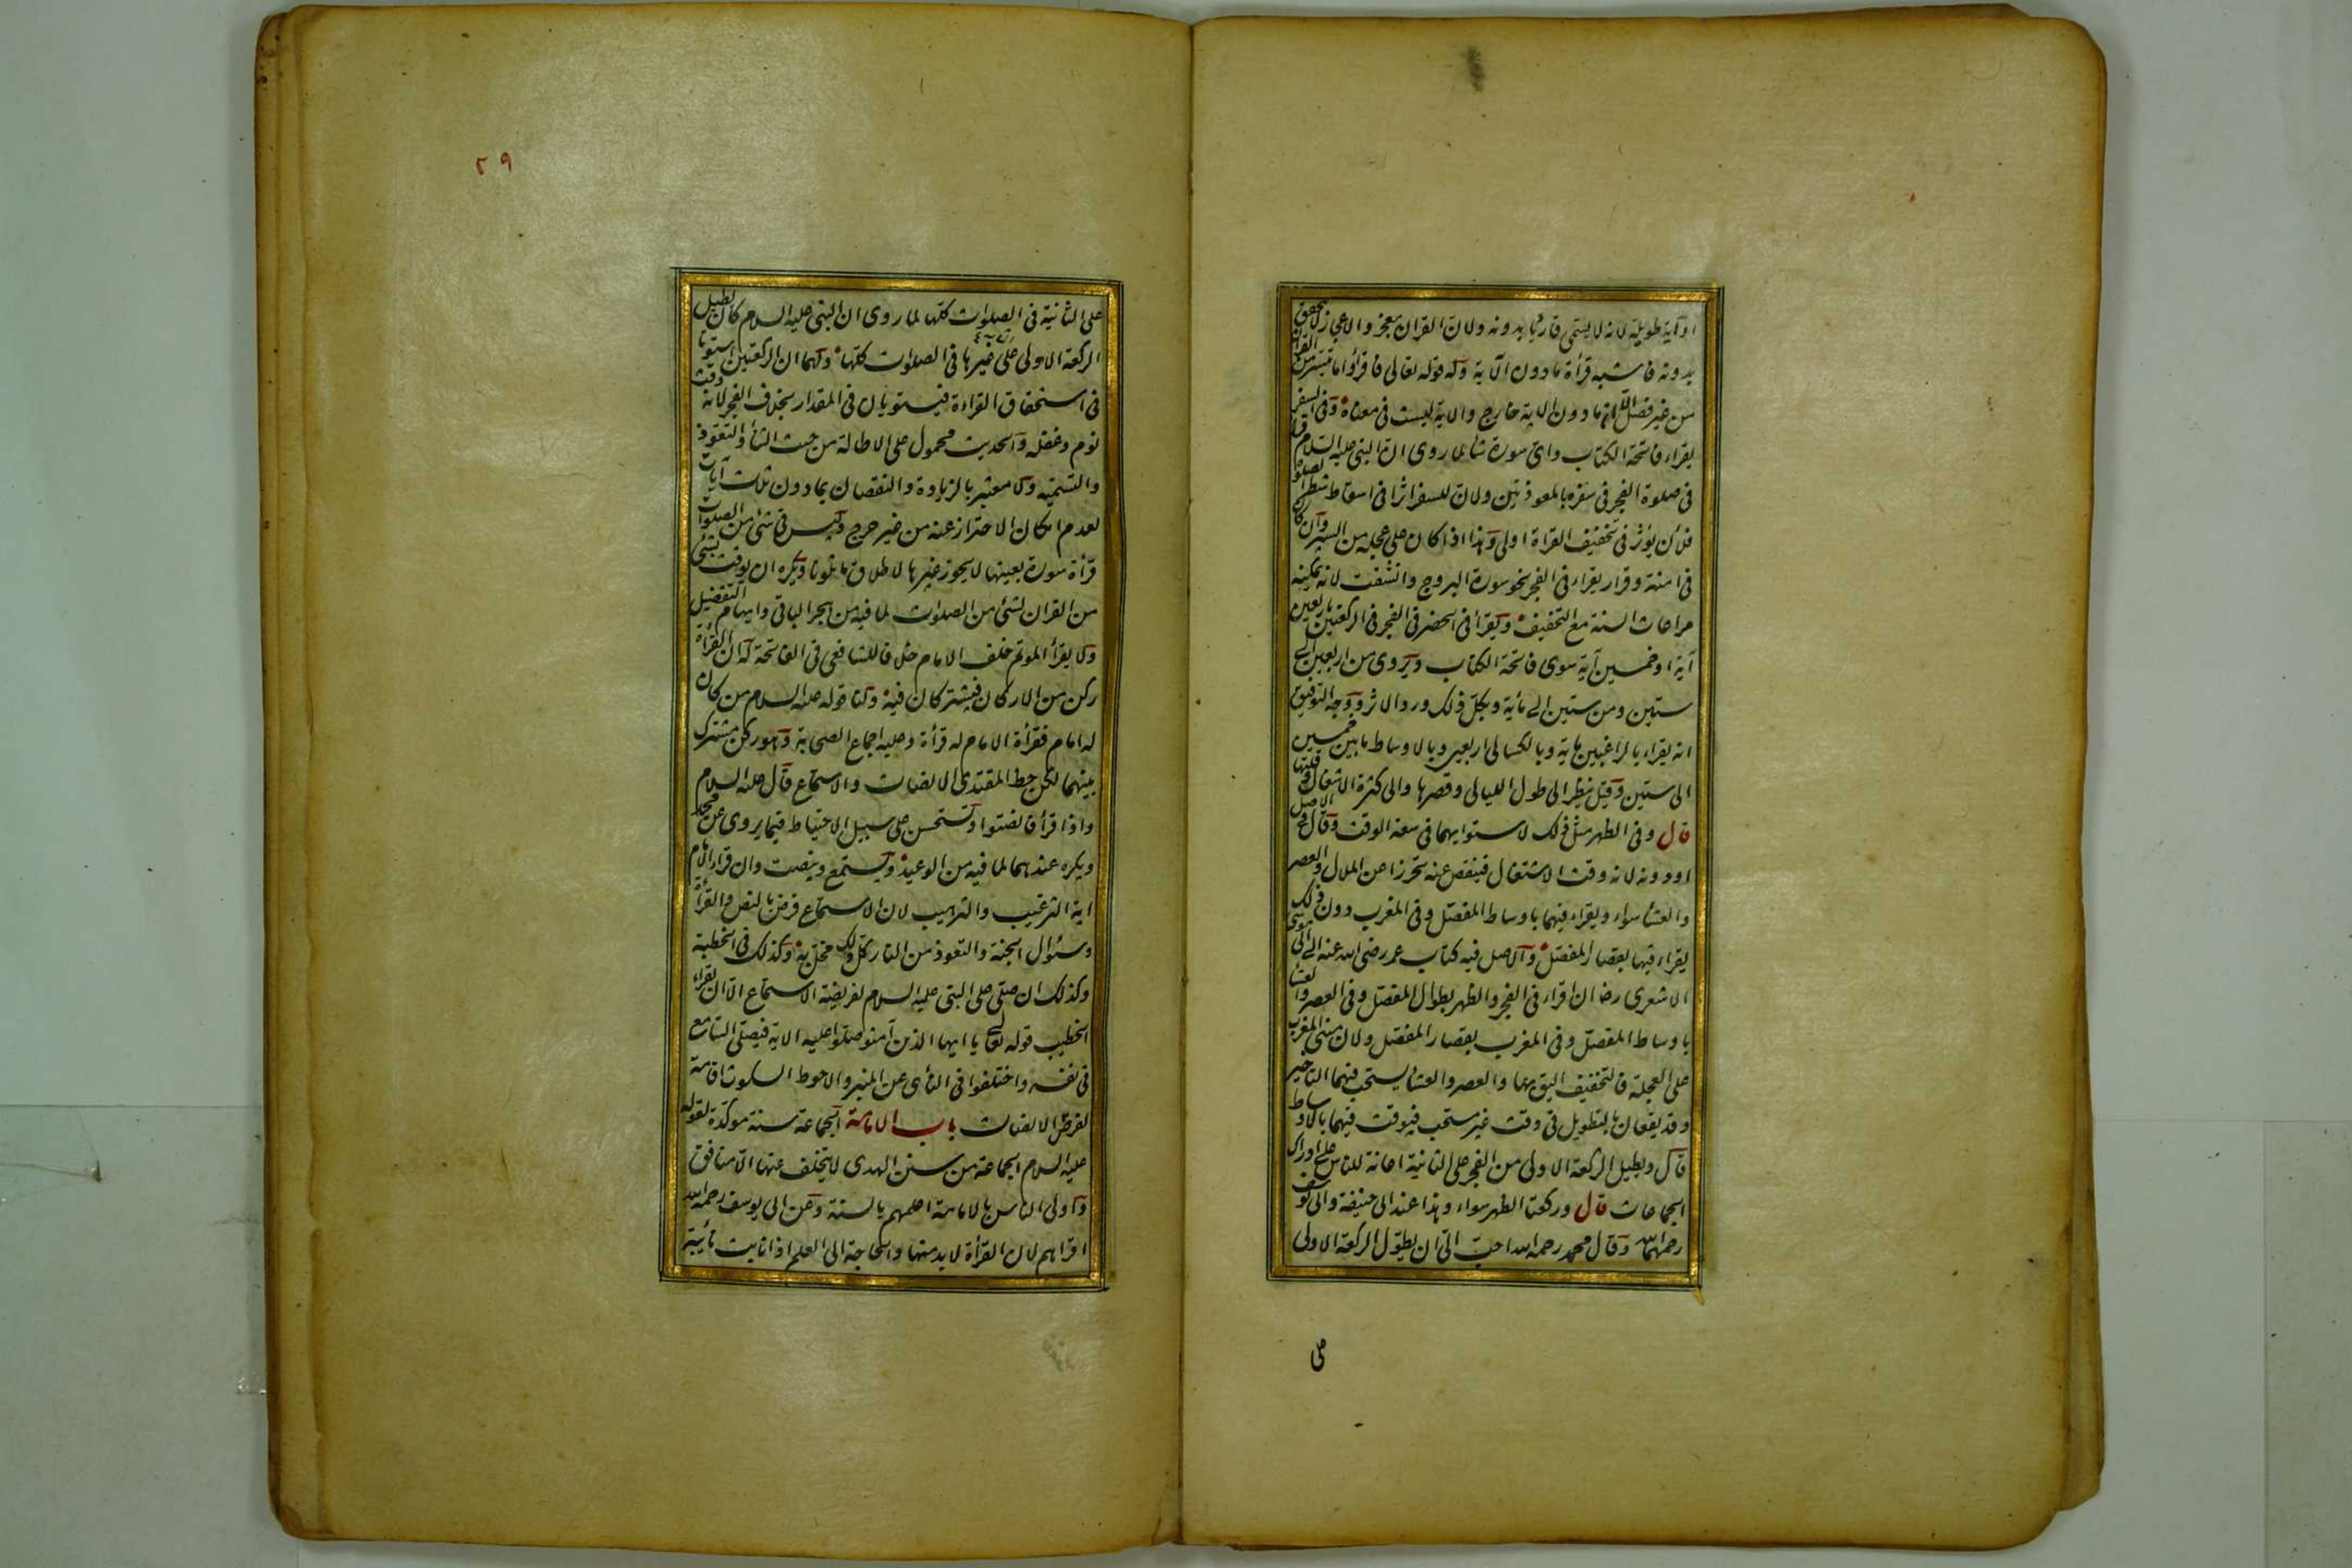 او آية طويلة لانه لا يسمى قارئا بدونه ولان القران معجز والاعجاز لا يتحقق
بدونه فاشبه قرأة مادون الآية وله قوله تعالى فاقرؤا ما تيسر من القران
من غير فصل الا ان مادون الاية خارج والاية ليست فى معناه وفى السفر
يقراء فاتحة الكتاب واى سورة شأ لما روى ان النبى عليه السلام قرأ
فى صلوة الفجر فى سفره بالمعوذتين ولان للسفر اثرا فى اسقاط شطر الصلوة
فلأن يؤثر فى تخفيف القراة اولى وهذا اذا كان على عجلة من السير وان كان
فى امنة وقرار يقراء فى الفجر نحو سورة البروج وانشقت لانه يمكنه
مراعات السنة مع التخفيف ويقرا فى الحضر فى الفجر فى الركعتين باربعين
آية او خمسين آية سوى فاتحة الكتاب ويروى من اربعين الى
ستين ومن ستين الى مائة وبكل ذلك ورد الاثر ووجه التوفيق
انه يقراء بالراغبين مائة وبالكسالى اربعين وبالاوساط مابين خمسين
الى ستين وقيل ينظر الى طول الليالى وقصرها والى كثرة الاشغال وقلتها
قال وفى الظهر مثل ذلك لاستوايهما فى سعة الوقت وقال فى الاصل
او دونه لانه وقت الاشتغال فينقص عنه تحرزا عن الملال والعصر
والعشأ سواء ويقراء فيهما باوساط المفصل وفى المغرب دون ذلك
يقراء فيها بقصار المفصل والاصل فيه كتاب عمر رضى الله عنه الى ابى موسى
الاشعرى رضا ان اقراء فى الفجر والظهر بطوال المفصل وفى العصر والعشأ
باوساط المفصل وفى المغرب بقصار المفصل ولان مبنى المغرب
على العجلة فالتخفيف اليق بها والعصر والعشأ يستحب فيهما التأخير
وقد يقعان بالتطويل فى وقت غير مستحب فيوقت فيهما بالاوساط
قال ويطيل الركعة الاولى من الفجر على الثانية اعانة للناس على ادراك
الجماعات قال وركعتا الظهر سواء وهذا عند ابى حنيفة وابى يوسف
رحمهما الله وقال محمد رحمه الله احب الى ان يطول الركعة الاولى
على
٢٩
على الثانية فى الصلوات كلها لما روى ان النبى عليه السلام كان يطيل
الركعة الاولى على غيرها فى الصلوات كلها ولهما ان الركعتين استويا
فى استحقاق القراءة فيستويان فى المقدار بخلاف الفجر لانه وقت
نوم وغفلة والحديث محمول على الاطالة من حيث الثنأ والتعوذ
والتسمية ولا معتبر بالزيادة والنقصان بمادون ثلاث آيات
لعدم امكان الاحتراز عنه من غير حرج وليس فى شئ من الصلوات
قرأة سورة بعينها لا يجوز غيرها لاطلاق ما تلونا ويكره ان يوقت بشئ
من القران لشئ من الصلوات لما فيه من هجر الباقى وايهام التفضيل
ولا يقرأ المؤتم خلف الامام خلافا للشافعى فى الفاتحة له ان القرأة
ركن من الاركان فيشتركان فيه ولنا قوله عليه السلام من كان
له امام فقرأة الامام له قرأة وعليه اجماع الصحابة وهو ركن مشترك
بينهما لكن حظ المقتدى الانصات والاستماع قال عليه السلام
واذا قرأ فانصتوا ويستحسن على سبيل الاحتياط فيما يروى عن محمد
ويكره عندهما لما فيه من الوعيد ويستمع وينصت وان قراء الامام
اية الترغيب والترهيب لان الاستماع فرض بالنص والقرأة
وسئوال الجنة والتعوذ من النار كل ذلك مخل به وكذلك فى الخطبة
وكذلك ان صلى على النبى عليه السلام لفريضة الاستماع الا ان يقراء
الخطيب قوله تعالى يا ايها الذين آمنو صلوا عليه الاية فيصلى السامع
فى نفسه واختلفوا فى النأى عن المنبر والاحوط السكوت اقامة
لفرض الانصات باب الامامة الجماعة سنة موكدة لقوله
عليه السلام الجماعة من سنن الهدى لا يتخلف عنها الا منافق
واولى الناس بالامامة اعلمهم بالسنة وعن ابى يوسف رحمه الله
اقراهم لان القرأة لابد منها والحاجة الى العلم اذا نابت نأيبة